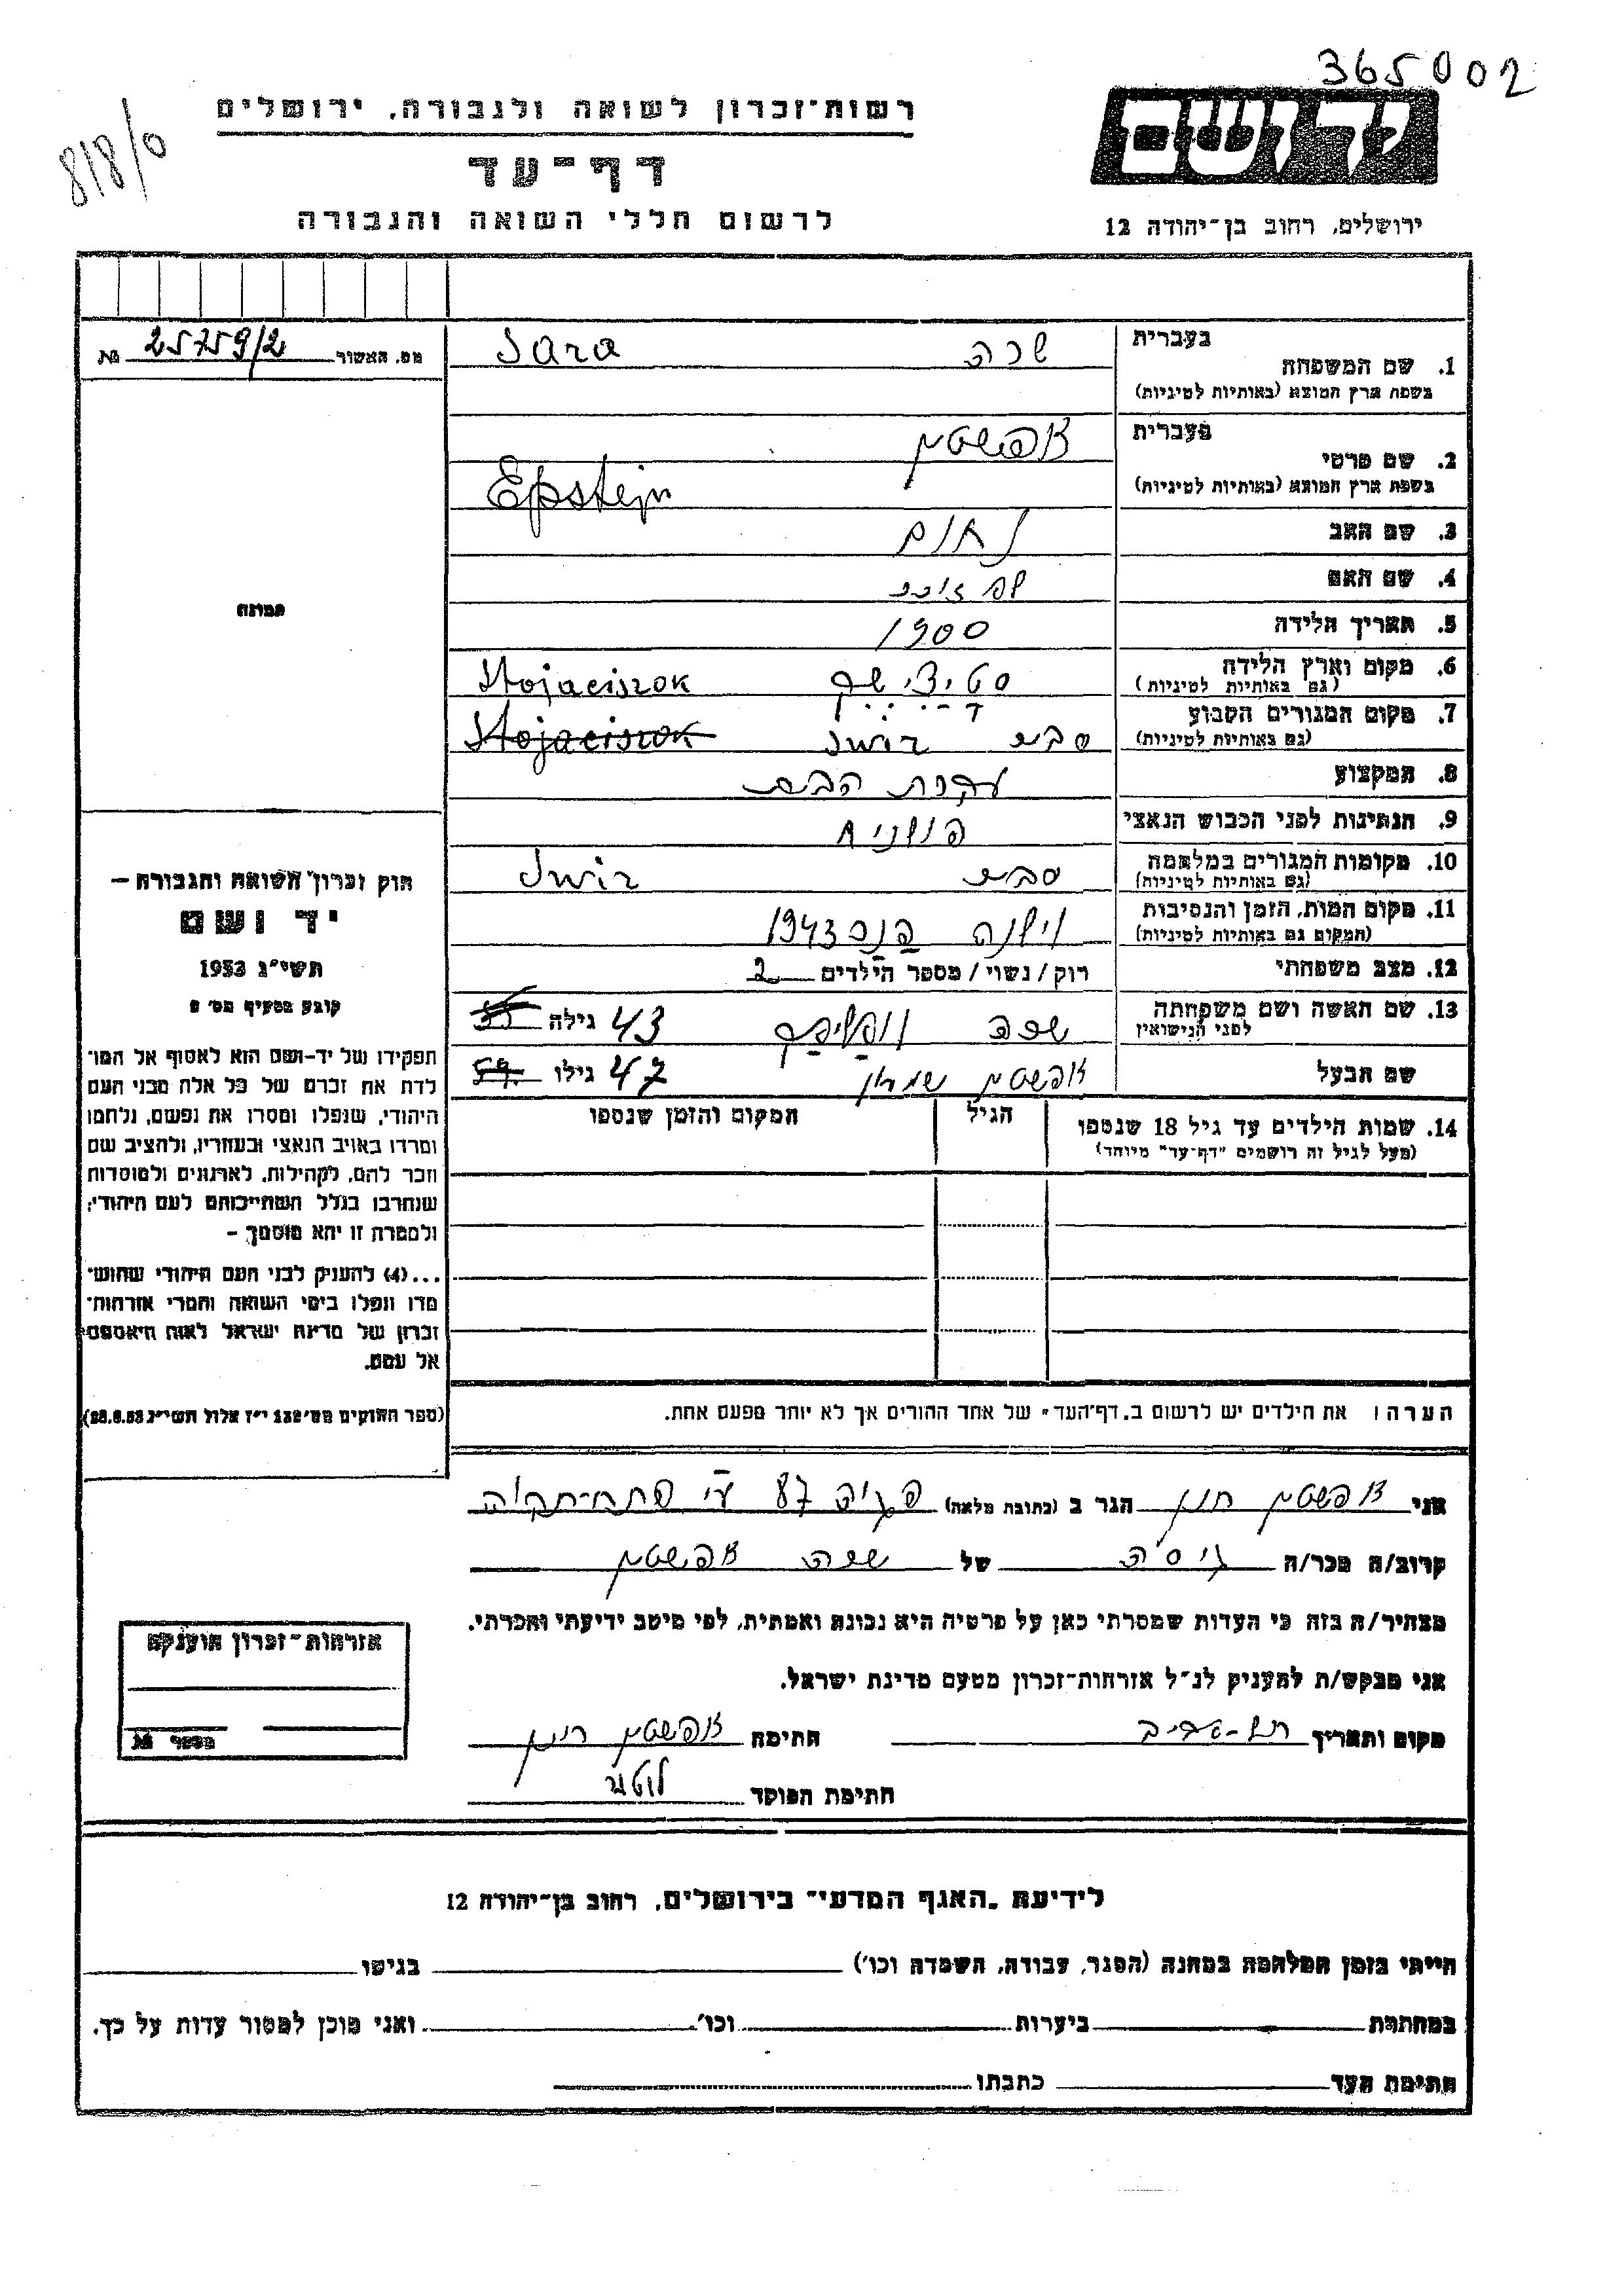 365002
818/0
רשות־זכרון לשואה ולגבורה, ירושלים
דף־עד
לרשום חללי השואה והגבורה
יד ושם
ירושלים, רחוב בן־יהודה 12
מס. האשור 25759/2 №
תמונה
חוק זכרון השואה והגבורה —
יד ושם
תשי״ג 1953
קובע בסעיף מס׳ 2
תפקידו של יד־ושם הוא לאסוף אל המו־
לדת את זכרם של כל אלה מבני העם
היהודי, שנפלו ומסרו את נפשם, נלחמו
ומרדו באויב הנאצי ובעוזריו, ולהציב שם
וזכר להם, לקהילות, לארגונים ולמוסדות
שנחרבו בגלל השתייכותם לעם היהודי;
ולמטרה זו יהא מוסמך —
...(4) להעניק לבני העם היהודי שהוש־
מדו ונפלו בימי השואה והמרי אזרחות־
זכרון של מדינת ישראל לאות היאספם
אל עמם.
(ספר החוקים מס׳ 132 י״ז אלול תשי״ג 28.8.53)
בעברית
1. שם המשפחה שרה Sara
בשפת ארץ המוצא (באותיות לטיניות)
בעברית
2. שם פרטי אפשטין
בשפת ארץ המוצא (באותיות לטיניות) Epstejn
3. שם האב נחום
4. שם האם
5. תאריך הלידה 1900
6. מקום וארץ הלידה Stojaciszok
(גם באותיות לטיניות)
7. מקום המגורים הקבוע סביר Swir Stojaciszok
(גם באותיות לטיניות)
8. המקצוע עקרת הבית
9. הנתינות לפני הכבוש הנאצי פולניה
10. מקומות המגורים במלחמה סביר Swir
(גם באותיות לטיניות)
11. מקום המות, הזמן והנסיבות וילנה 1943
(המקום גם באותיות לטיניות)
12. מצב משפחתי רוק / נשוי / מספר הילדים 2
13. שם האשה ושם משפחתה שרה גילה 43
לפני הנישואין
שם הבעל אפשטין גילו 47
14. שמות הילדים עד גיל 18 שנספו הגיל המקום והזמן שנספו
(מעל לגיל זה רושמים "דף־עד" מיוחד)
הערה: את הילדים יש לרשום ב„דף־העד" של אחד ההורים אך לא יותר מפעם אחת.
אני אפשטין הגר ב (כתובת מלאה) 87 פתח־תקוה
קרוב/ה מכר/ה גיסה של שרה אפשטין
מצהיר/ה בזה כי העדות שמסרתי כאן על פרטיה היא נכונה ואמתית, לפי מיטב ידיעתי והכרתי.
אני מבקש/ת להעניק לנ״ל אזרחות־זכרון מטעם מדינת ישראל.
מקום ותאריך תל־אביב חתימה אפשטין
חתימת הפוקד
אזרחות־זכרון הוענקה
מספר №
לידיעת „האגף המדעי" בירושלים, רחוב בן־יהודה 12
הייתי בזמן המלחמה במחנה (הסגר, עבודה, השמדה וכו׳) בגיטו
במחתרת ביערות וכו׳ ואני מוכן למסור עדות על כך.
חתימת העד כתבתו